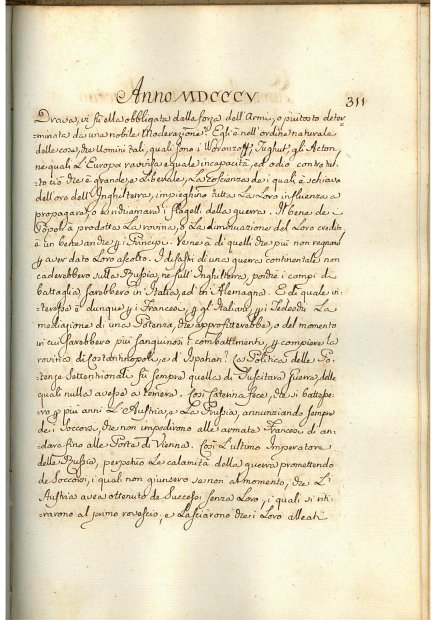 Anno MDCCCV.
311
Drava, vi fù ella obbligata dalla forza dell'Armi, o piutosto deter-
minata da una nobile Moderazione? Egli è nell'ordine naturale
delle cose, che Uomini tali, quali sono i Woronzoff,
ne quali L'Europa ravvisa eguale incapacità, ed odio contro tut-
to ciò che è grande, e Liberale, La coscienza de i quali è schiava
dell'oro dell'Inghilterra, impieghino tutta La Loro influenza a
propagare, o a richiamare i flagelli della guerra. Il bene de i
Popoli a prodotta La rovina, o La diminuzione del Loro credito,
è un bene anche p i Principi. Venè à di quelli che più non regnano
p aver dato Loro ascolto. I disastri di una guerra continentale non
caderebbero sulla Russia, nè sull'Inghilterra, poichè i campi di
battaglia sarebbero in Italia, ed in Alemagna. E di quale in-
teresse è dunque p i Francesi, p gl'Italiani, p i Tedeschi La
mediazione di una Potenza, che approfitterebbe, o del momento
in cui sarebbero più sanguinosi i combattimenti, p compiere la
rovina di Costantinopoli, e d'Ispahan? La Politica delle Po-
tenze Settentrionali fù sempre quella di suscitare Guerra, delle
quali nulla avesse a temere. Così Caterina fece, che si battesse-
ro p più anni L'Austria, e La Prussia, annunziando sempre
de i Soccorsi, che non impedirono alle armate Francesi di an-
dare fino alle Porte di Vienna. Così L'ultimo Imperatore
delle Russie, perpetuò Le calamità della guerra promettendo
de Soccorsi, i quali non giunsero se non al momento, che L'
Austria avea ottenuto de Successi senza Loro, i quali si riti-
rarono al primo rovescio, e Lasciarono che i Loro alleati